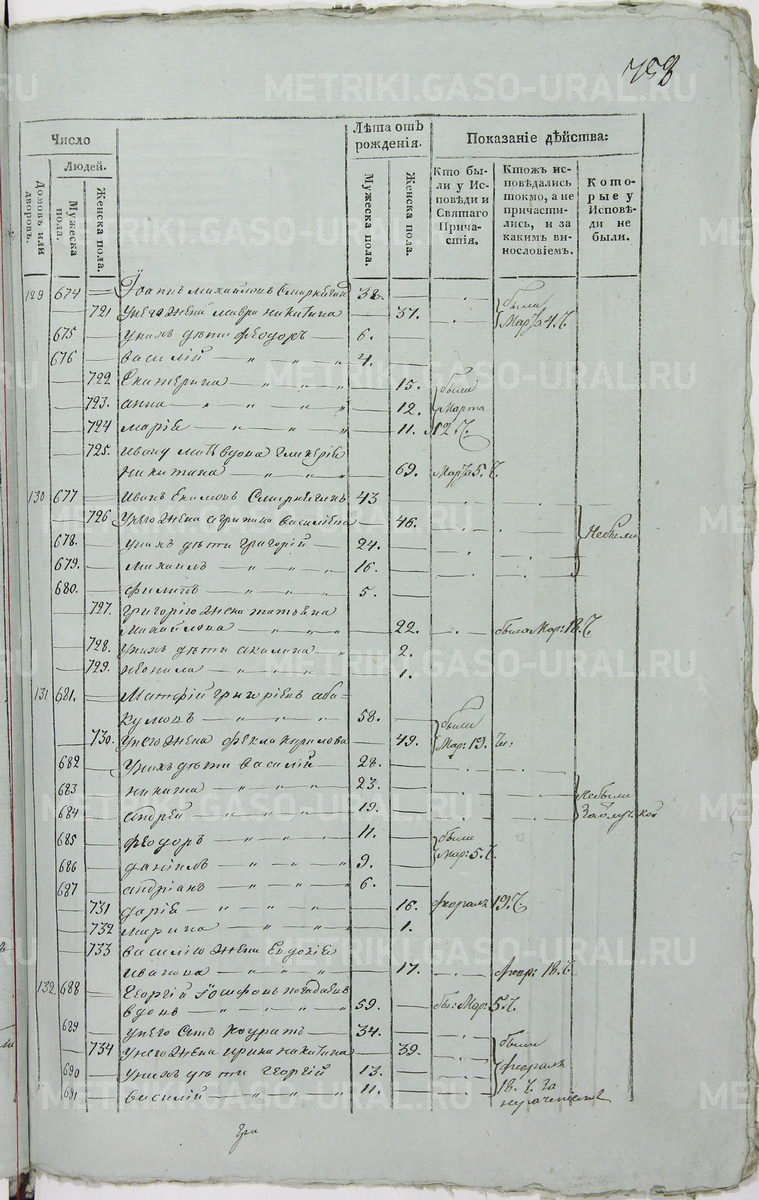 758
Число
Лѣта отъ рожденія.
Показаніе дѣйства:
Людей.
Домовъ или дворовъ.
Мужеска пола.
Женска пола.
Мужеска пола.
Женска пола.
Кто были у Исповѣди и Святаго Причастія.
Ктожъ исповѣдались токмо, а не причастились, и за какимъ винословіемъ.
Которые у Исповѣди не были.
129 674 Іоаннъ Михайловъ 38.
721 У него жена Мавра Никитина 37. были Мар: 4. Ч.
675 У нихъ дѣти Феодоръ — 6.
676 Василій — " " " 4.
722 Екатерина — " " " 15. были
723. Анна — " " " 12. Марта
724 Маріѣ — " " " 11. 12. Ч.
725. Ивану вдова Гликеріѣ
Никитина " " 69. Мар: 5. Ч.
130 677 Иванъ Екимовъ 43
726 У него жена Агрипина Василіевна 46.
678. У нихъ дѣти Григорій — 24. Небыли
679. Михаилъ — " " 16.
680. Филипъ — " " " 5.
727. Григорію жена Татьяна
Михайлова " " " 22. была Мар: 18. Ч.
728. У нихъ дѣти Акилина " 2.
729. Неонила — " " " 1.
131 681. Матфій Григоріевъ Аба=
кумовъ — " " " 58. были
730. У него жена Фекла Кирилова 49. Мар: 19. Ч.
682 У нихъ дѣти Василій — 28.
683 Никита — " " " 23. Небыли
684 Андрей — " " " 19.
685 Феодоръ — " " " 11. были
686 Даніилъ — " " " 9. Мар: 5. Ч.
687 Андріанъ — " " " 6.
731 Даріѣ — " " " 16. Февраля 19. Ч.
732 Марина — " " " 1.
733 Василію жена Евдокіѣ
Иванова " " " 17. Февр: 18. Ч.
132. 688 Георгій Іосифовъ
вдовъ — " " " 59. бы: Мар: 5. Ч.
689 У него сынъ Кодратъ — 34.
734 У него жена Ирина Никитина 39. были
690 У нихъ дѣти Георгій 13. Февраля
691 Василій — " " " 11. 18. Ч. за
METRIKI.GASO-URAL.RU